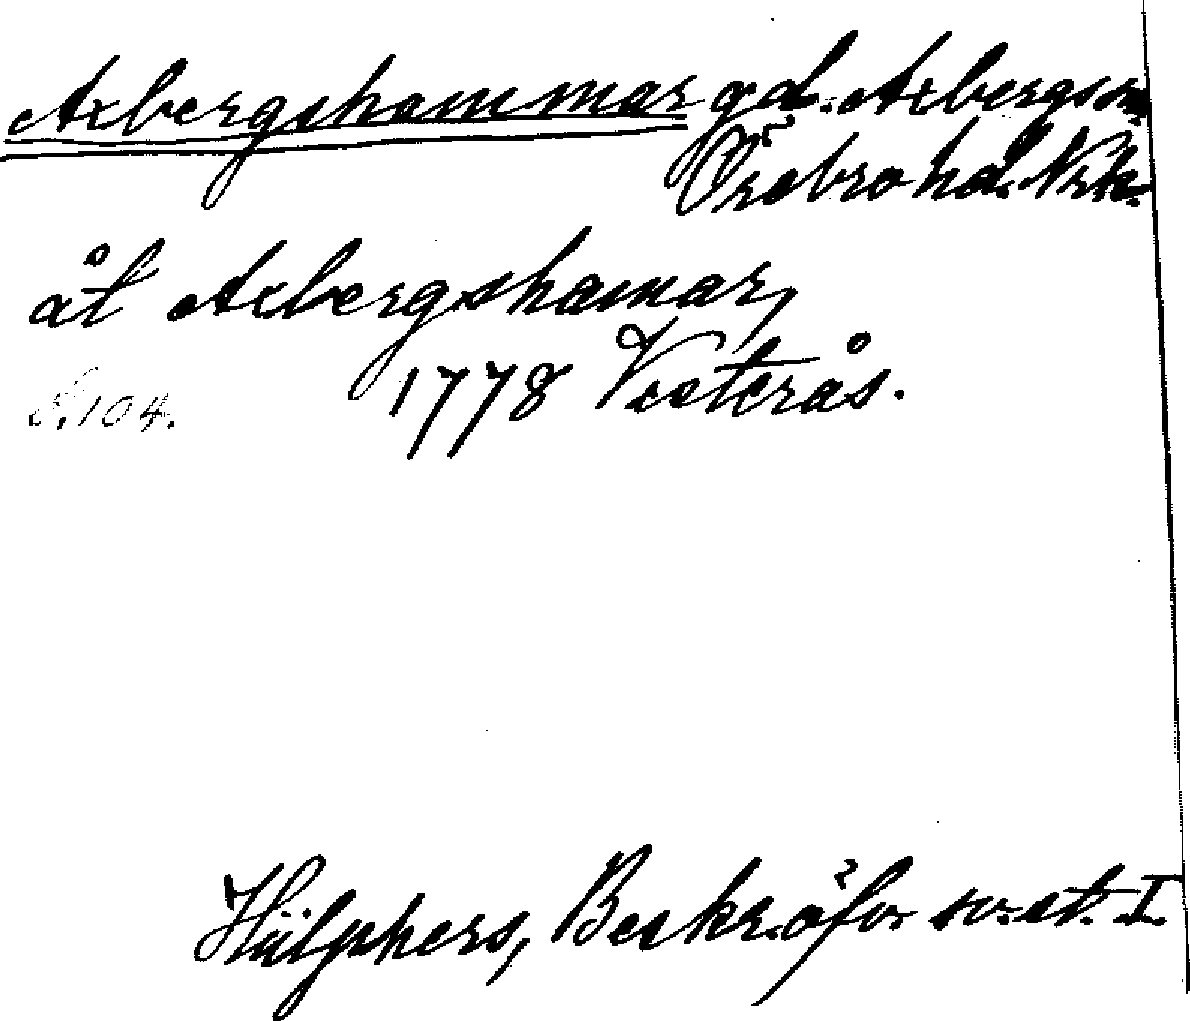 Axbergshammar gd. Axbergs sn
Örebro hd. Nrk.
åt Axbergshamar,
1778 Vesterås.
S. 104.
Hülphers, Beskr. öfv. sv. st. I